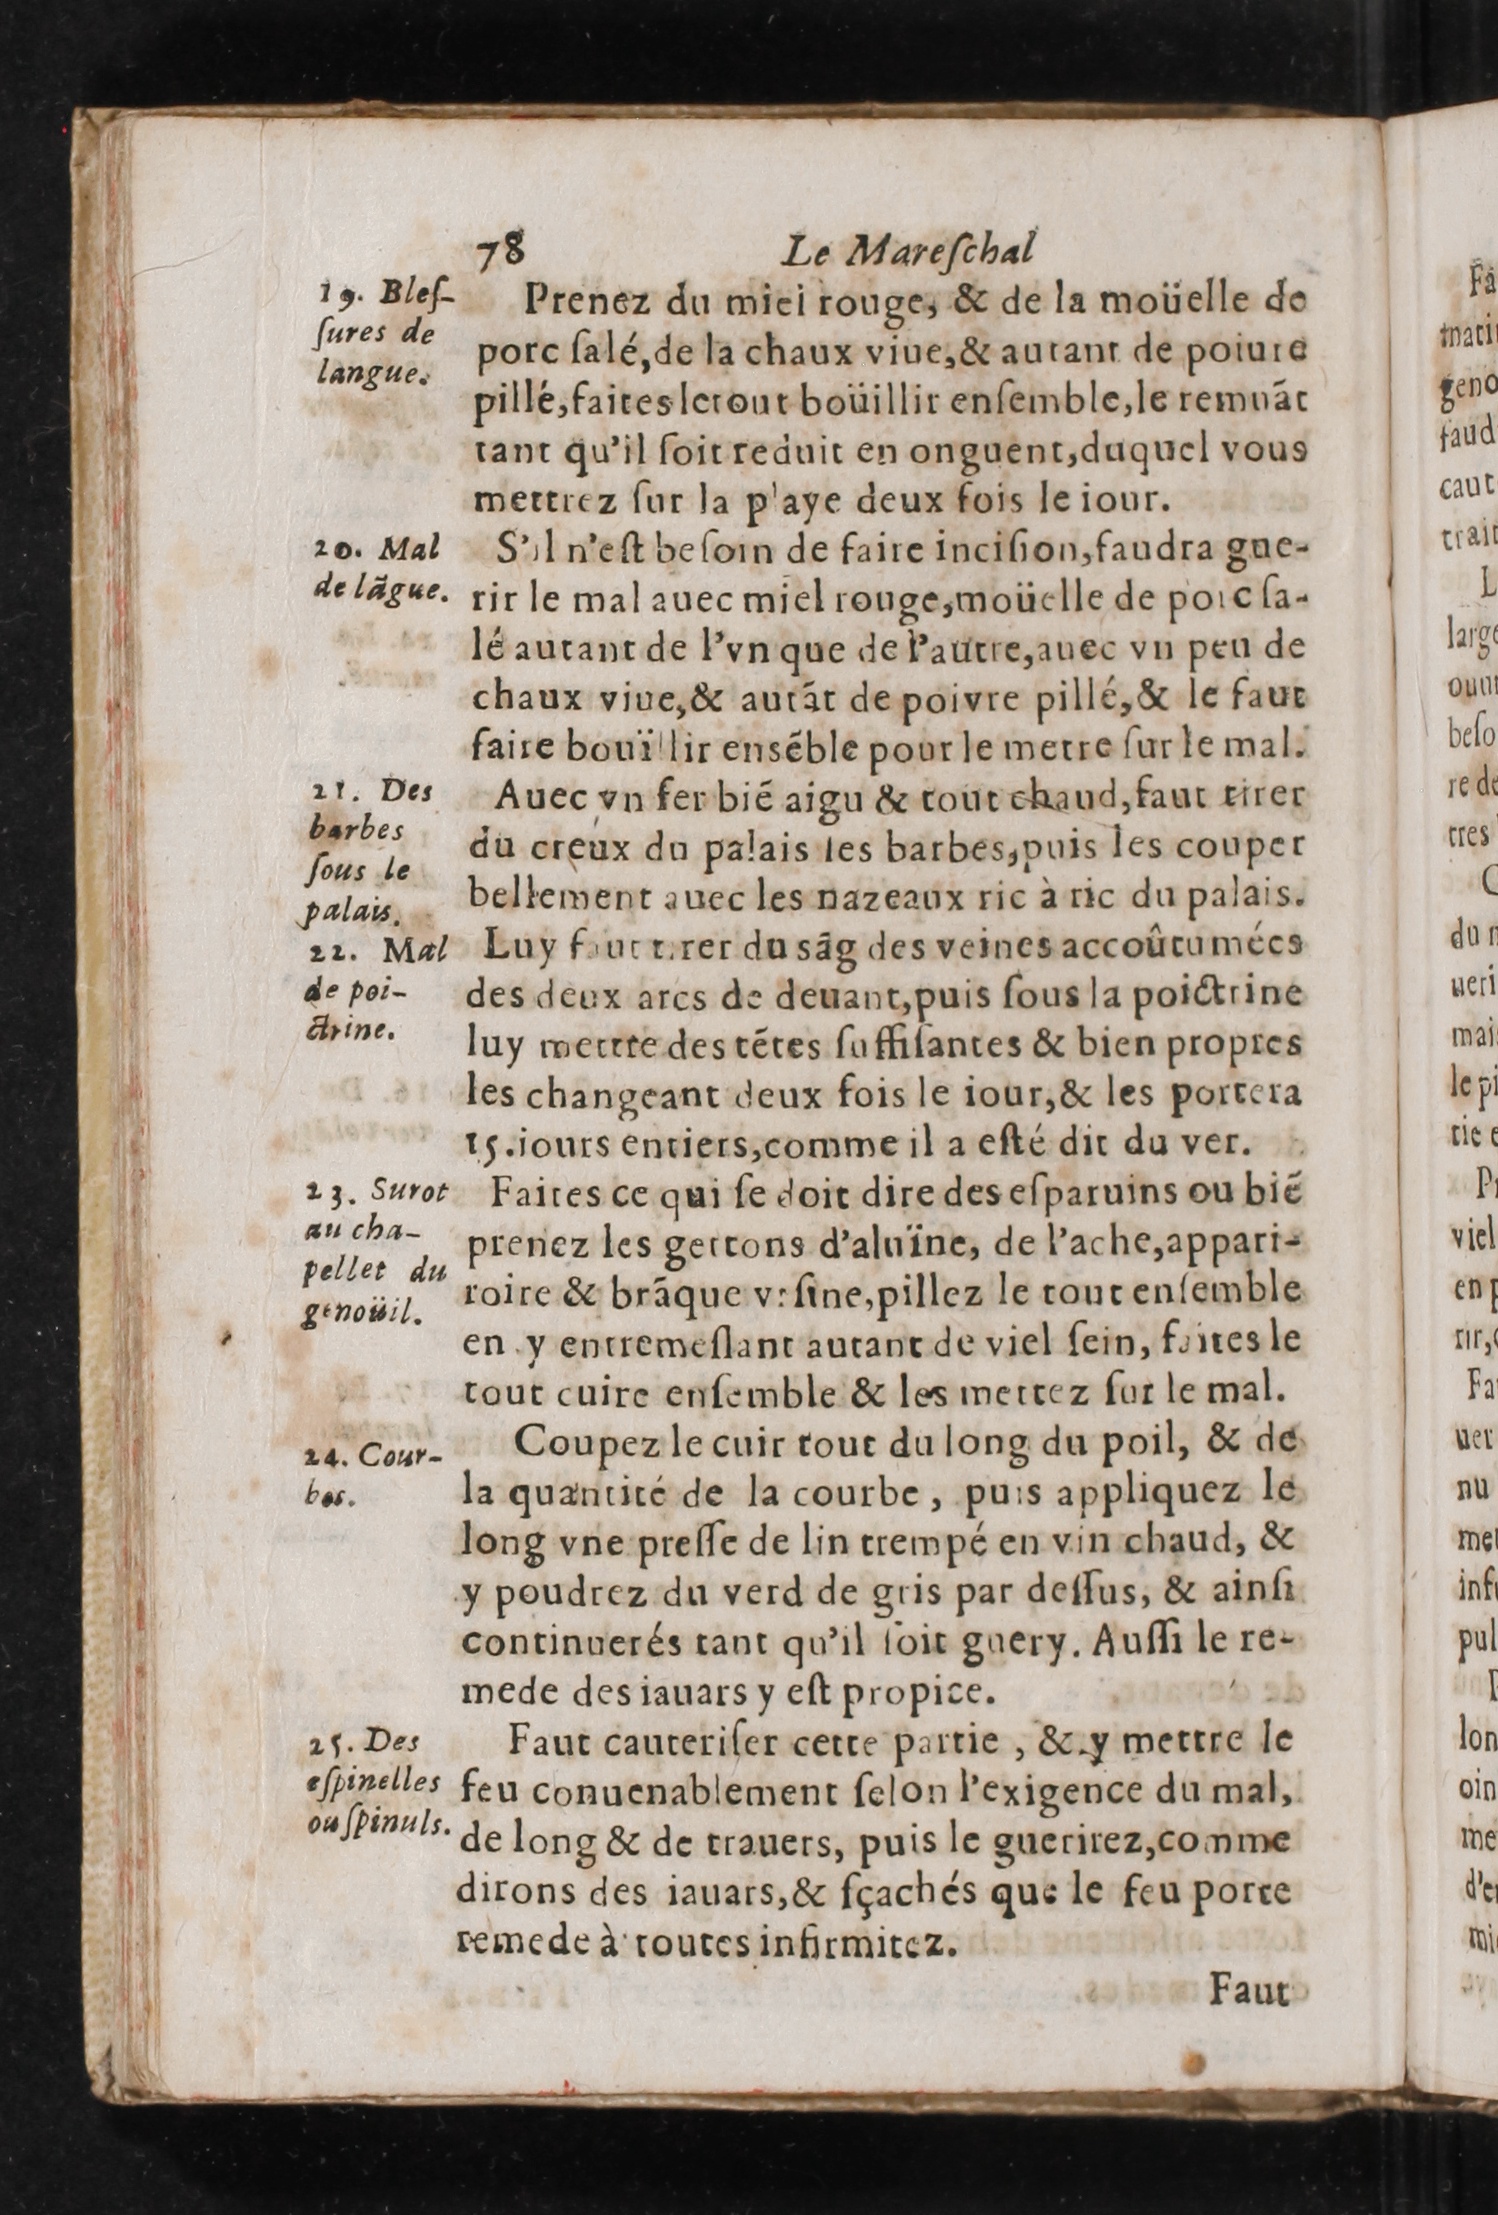 78 Le Mareſchal
19. Bleſ-
ſures de
langue.
Prenez du miel rouge, & de la moüelle de
porc ſalé,de la chaux viue,& autant de poiure
pillé,faites le tout boüillir enſemble,le remuãt
tant qu'il ſoit reduit en onguent,duquel vous
mettrez ſur la playe deux fois le iour.
20. Mal
de lãgue.
S'il n'eſt beſoin de faire inciſion,faudra gue-
rir le mal auec miel rouge,moüelle de porc ſa-
lé autant de l'vn que de l'autre,auec vn peu de
chaux viue,& autãt de poivre pillé,& le faut
faire bouïllir ensẽble pour le metre ſur le mal.
21. Des
barbes
ſous le
palais.
Auec vn fer biẽ aigu & tout chaud,faut tirer
du creux du palais les barbes,puis les couper
bellement auec les nazeaux ric à ric du palais.
22. Mal
de poi-
ctrine.
Luy faut tirer du sãg des veines accoûtumées
des deux arcs de deuant,puis ſous la poictrine
luy mettre des tẽtes ſuffiſantes & bien propres
les changeant deux fois le iour,& les portera
15.iours entiers,comme il a eſté dit du ver.
23. Surot
au cha-
pellet du
genoüil.
Faites ce qui ſe doit dire des eſparuins ou biẽ
prenez les gettons d'aluïne, de l'ache,appari-
roire & brãque vrſine,pillez le tout enſemble
en y entremeſlant autant de viel ſein, faites le
tout cuire enſemble & les mettez ſur le mal.
24. Cour-
bes.
Coupez le cuir tout du long du poil, & de
la quantité de la courbe, puis appliquez le
long vne preſſe de lin trempé en vin chaud, &
y poudrez du verd de gris par deſſus, & ainſi
continuerés tant qu'il ſoit guery. Auſſi le re-
mede des iauars y eſt propice.
25. Des
eſpinelles
ou ſpinuls.
Faut cauteriſer cette partie, & y mettre le
feu conuenablement ſelon l'exigence du mal,
de long & de trauers, puis le guerirez,comme
dirons des iauars,& ſçachés que le feu porte
remede à toutes infirmitez.
Faut